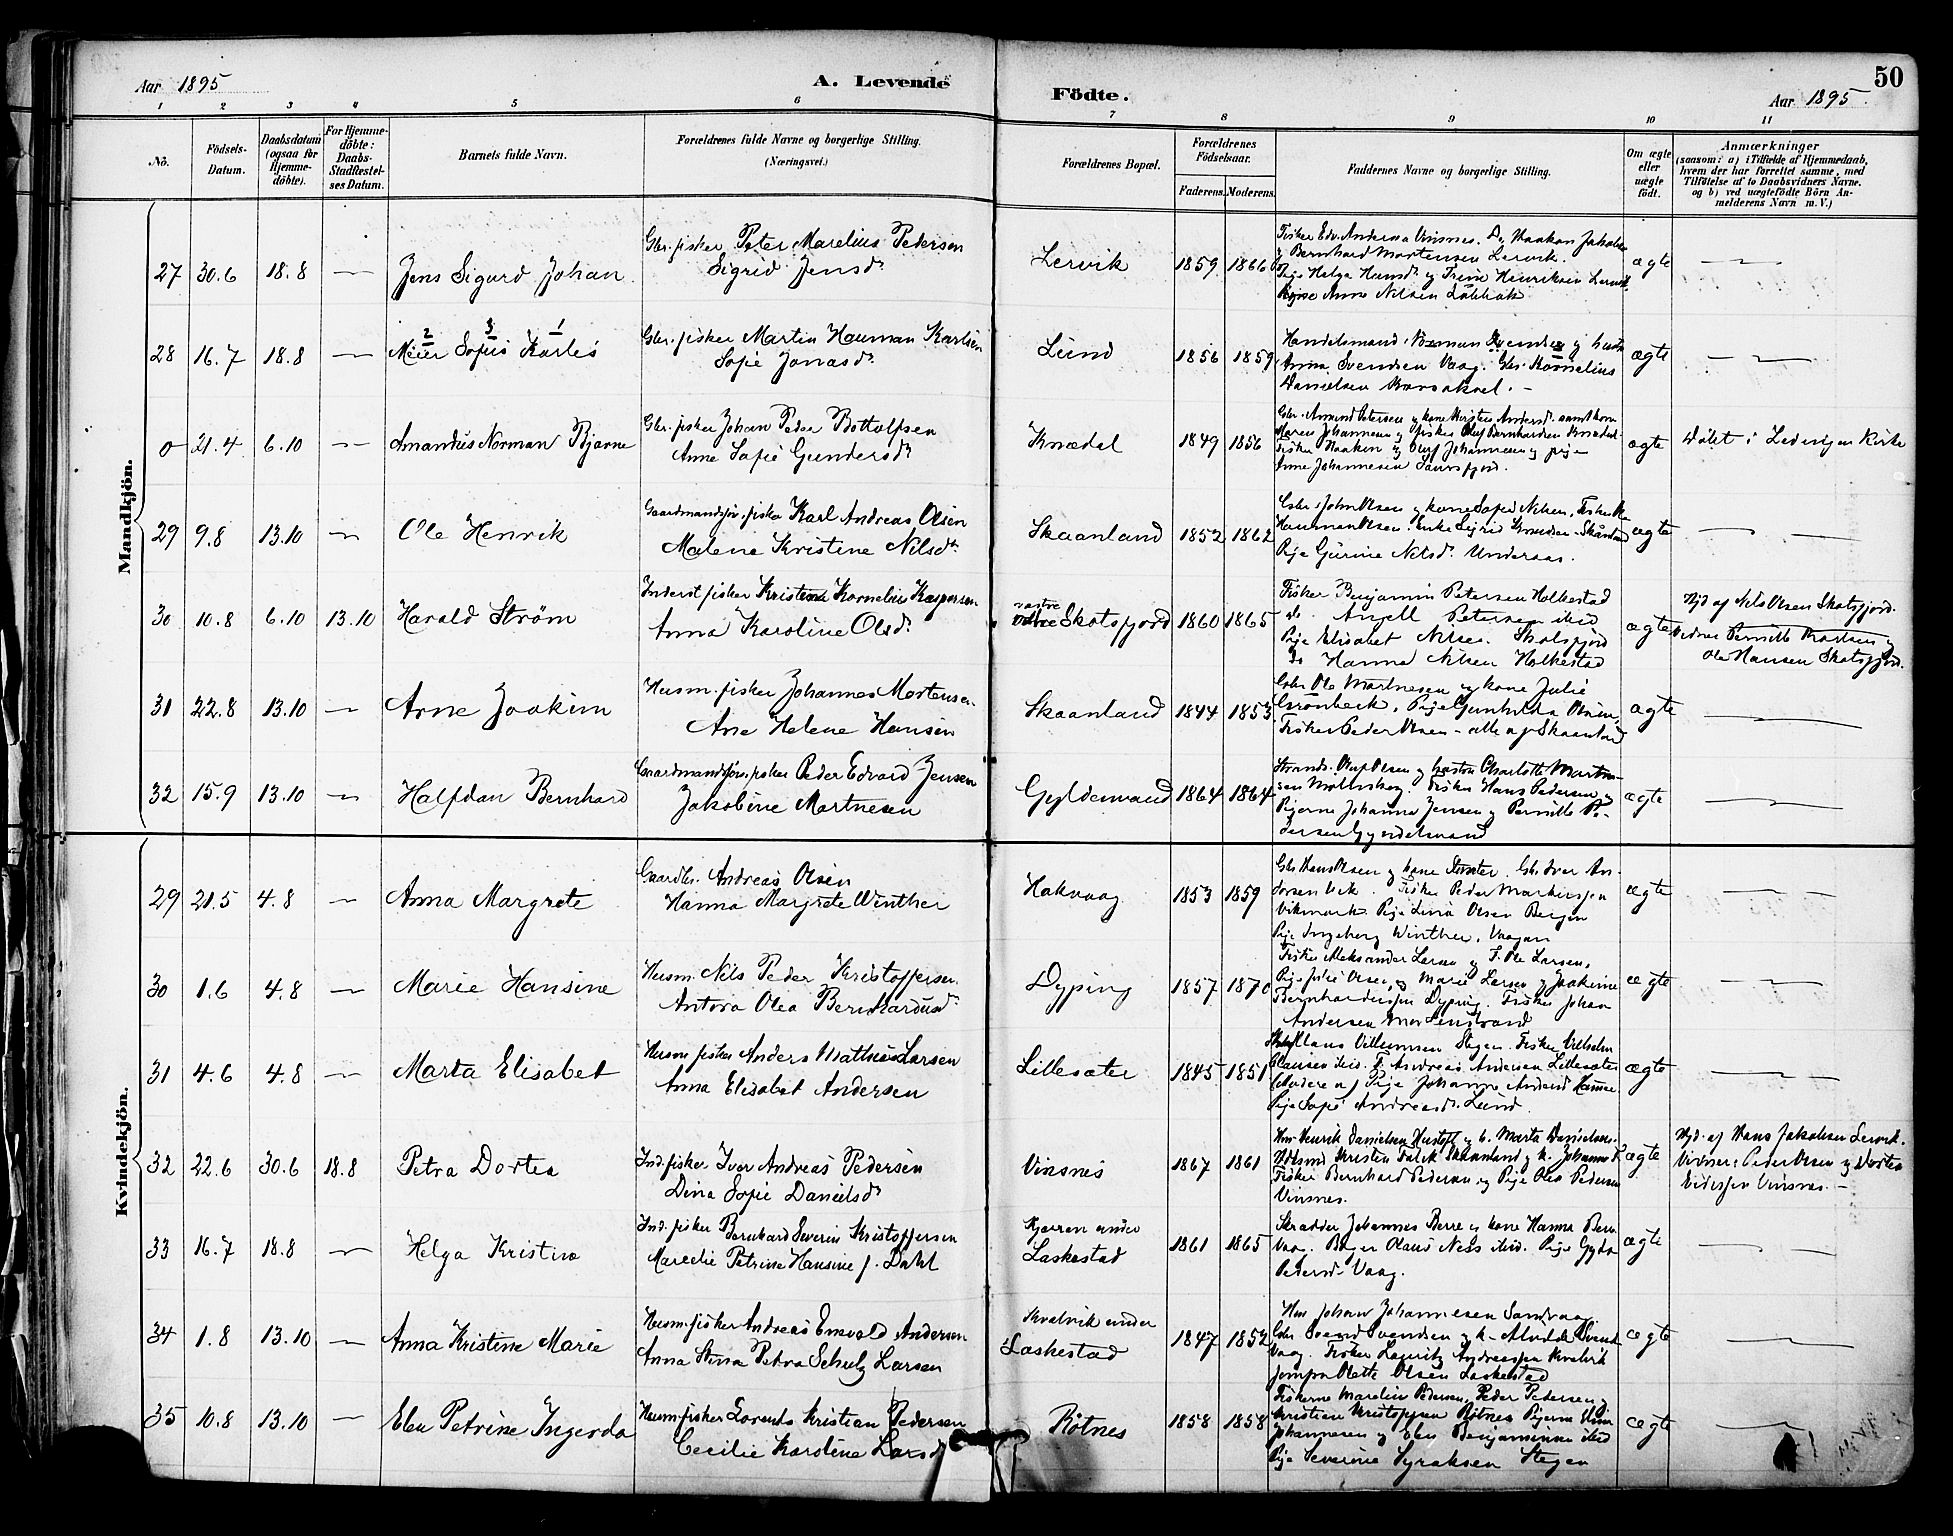 Aar 1895
A. Levende
Födte.
Aar 1895
50
1 2 3 4 5 6 7 8 9 10 11
No.
Födsels-
Datum.
Daabsdatum
(ogsaa for
Hjemme-
döbte).
For Hjemme-
döbte:
Daabs-
Stadfæstel-
ses Datum.
Barnets fulde Navn.
Forældrenes fulde Navne og borgerlige Stilling.
(Næringsvei.)
Forældrenes Bopæl.
Forældrenes
Födselsaar.
Faderens. Moderens.
Faddernes Navne og borgerlige Stilling.
Om ægte
eller
uægte
født.
Anmærkninger
(saasom: a) i Tilfælde af Hjemmedaab,
hvem der har forrettet samme, med
Tilföielse af to Daabsvidners Navne.
og b) ved uægtefödte Börn An-
melderens Navn m. V.)
Mandkjön.
27 30.6 18.8 — Jens Sigurd Johan
Gbr. fisker Peter Marelius Pedersen
Sigrid Jensd.
Lervik 1859 1866
Bernhard Mortensen Lervik.
Pige Helga Hansd. og Trine Henriksen Lervik
Anne Nilsen
ægte —
28 16.7 18.8 — Meier Sofus Karles
2 3 1
Gbr. fisker Martin Hauman Karlsen
Sofie Jonasd.
Lund 1856 1859
Handelsmand Norman Svendsen og hustru
Anna Svendsen Vaag. Gbr. Kornelius
Danielsen
ægte —
0 21.4 6.10 — Amandus Norman Bjarne
Gbr. fisker Johan Peder Bottolfsen
Anne Sofie Gundersd.
Knædel 1849 1856
Maren Johannesen og fisker Oluf Bernhardsen Knædel
Fisker Haakon og Oluf Johannesen og pige
Anne Johannesen
ægte Døbt i Ledingen Kirke
29 9.8 13.10 — Ole Henrik
Gaardmandsføv. fisker Karl Andreas Olsen
Malene Kristine Nilsd.
Skaanland 1852 1862
Gbr. John Olsen og kone Sofie Nilsen, Fisker
Hauman Olsen. Enke Sigrid Knudsen - Skaanland
Pige Gurine Nilsd. Underaas.
ægte — —
30 10.8 6.10 13.10 Harald Strøm
Inderst fisker Kristen Kornelius Kaspersen
Anna Karoline Olsd.
vestre
Skotsfjord 1860 1865
Fisker Benjamin Petersen Holkestad
do Angell Petersen ibid
Pige Elisabet Nilsen Skotsfjord
do Hanna Nilsen Holkestad
ægte
Hjd af Nils Olsen Skotsfjord.
Vidner Pernille Karlsen og
Ole Hansen Skotsfjord.
31 22.8 13.10 — Arne Joakim
Husm. fisker Johannes Mortensen
Ane Helene Hansen
Skaanland 1844 1853
Gbr. Ole Martnesen og kone Julie
Grønbeck, Pige Gunhilda Olsen,
Fisker Peder Olsen - alle af Skaanland
ægte —
32 15.9 13.10 — Halfdan Bernhard
Gaardmandsføv. fisker Peder Edvard Jensen
Jakobine Martnesen
Gyldenvand 1864 1864
Strands. Oluf Olsen og hustru Charlotte Martne-
sen Fisker Hans Pedersen og
Pigerne Johanna Jensen og Pernille Pe-
dersen
ægte —
Kvindekjön.
29 21.5 4.8 — Anna Margrete
Gaardbr. Andreas Olsen
Hanna Margrete Winther
Hakvaag 1853 1859
Gbr. Hans Olsen og kone Gbr. Iver An-
dersen Fisker Peder Markussen
Vikmark. Pige Lina Olsen Bergen
Pige Ingeborg Winther, Vaagan
ægte — —
30 1.6 4.8 — Marie Hansine
Husm. Nils Peder Kristoffersen
Antora Olea Bernhardusd.
Dyping 1857 1870
Fisker Aleksander Larsen og F. Ole Larsen,
Pige Julie Olsen og Marie Larsen og Joakime
Bernhardussen Dyping. Fisker Johan
Andersen
ægte —
31 4.6 4.8 — Marta Elisabet
Husm. fisker Anders Mathias Larsen
Anna Elisabet Andersen
Lillesæter 1845 1851
Klaus Villumsen Stegen. Fisker Vilhelm
Clausen ibid. F. Andreas Andersen Lillesæter
Pige Johanne Andersd.
Pige Sofie Andreasd. Lund.
ægte —
32 22.6 30.6 18.8 Petra Dortea
Ind. fisker Iver Andreas Pedersen
Dina Sofie Danielsd.
Vinsnes 1867 1861
Hm. Henrik Danielsen Hustoft og h. Marta Danielsen.
Kristen Falck Skaanland og k. Johanna F.
Fisker Bernhard Pedersen og Pige Olea Pedersen
Vinsnes.
ægte
Hjd. af Hans Jakobsen Lervik.
Vidner: Peder Olsen og Dortea
Vinsnes. —
33 16.7 18.8 — Helga Kristine
Ind. fisker Bernhard Severin Kristoffersen
Marcelie Petrine Hansine f. Dahl
Kjerren under
Laskestad 1861 1865
Skrædder Johannes Berre og kone Hanna Berre
Vaag. Bager Olaus Ness ibid. Pige Gyda
Pedersd. Vaag.
ægte — —
34 1.8 13.10 — Anna Kristine Marie
Husm. fisker Andreas Enevold Andersen
Anna Stina Petra Schulz Larsen
Kvalvik under
Laskestad 1847 1852
Hm Johan Johannesen Sandvaag
Gbr. Svend Svendsen og k. Alvilde Svendsen
Vaag. Fisker Lauritz Andreassen Kvalvik
Jomfru Olette Olsen Laskestad
ægte —
35 10.8 13.10 — Elen Petrine Ingerda
Husm. fisker Lorents Kristian Pedersen
Cecilie Karoline Larsd.
Røtnes 1858 1858
Fiskerne Marelius Pedersen, Peder Pedersen og
Kristian Kristoffersen Røtnes Pigerne
Johannesen og Elen Benjaminsen ibid
Pige Severine Syraksen Stegen
ægte —